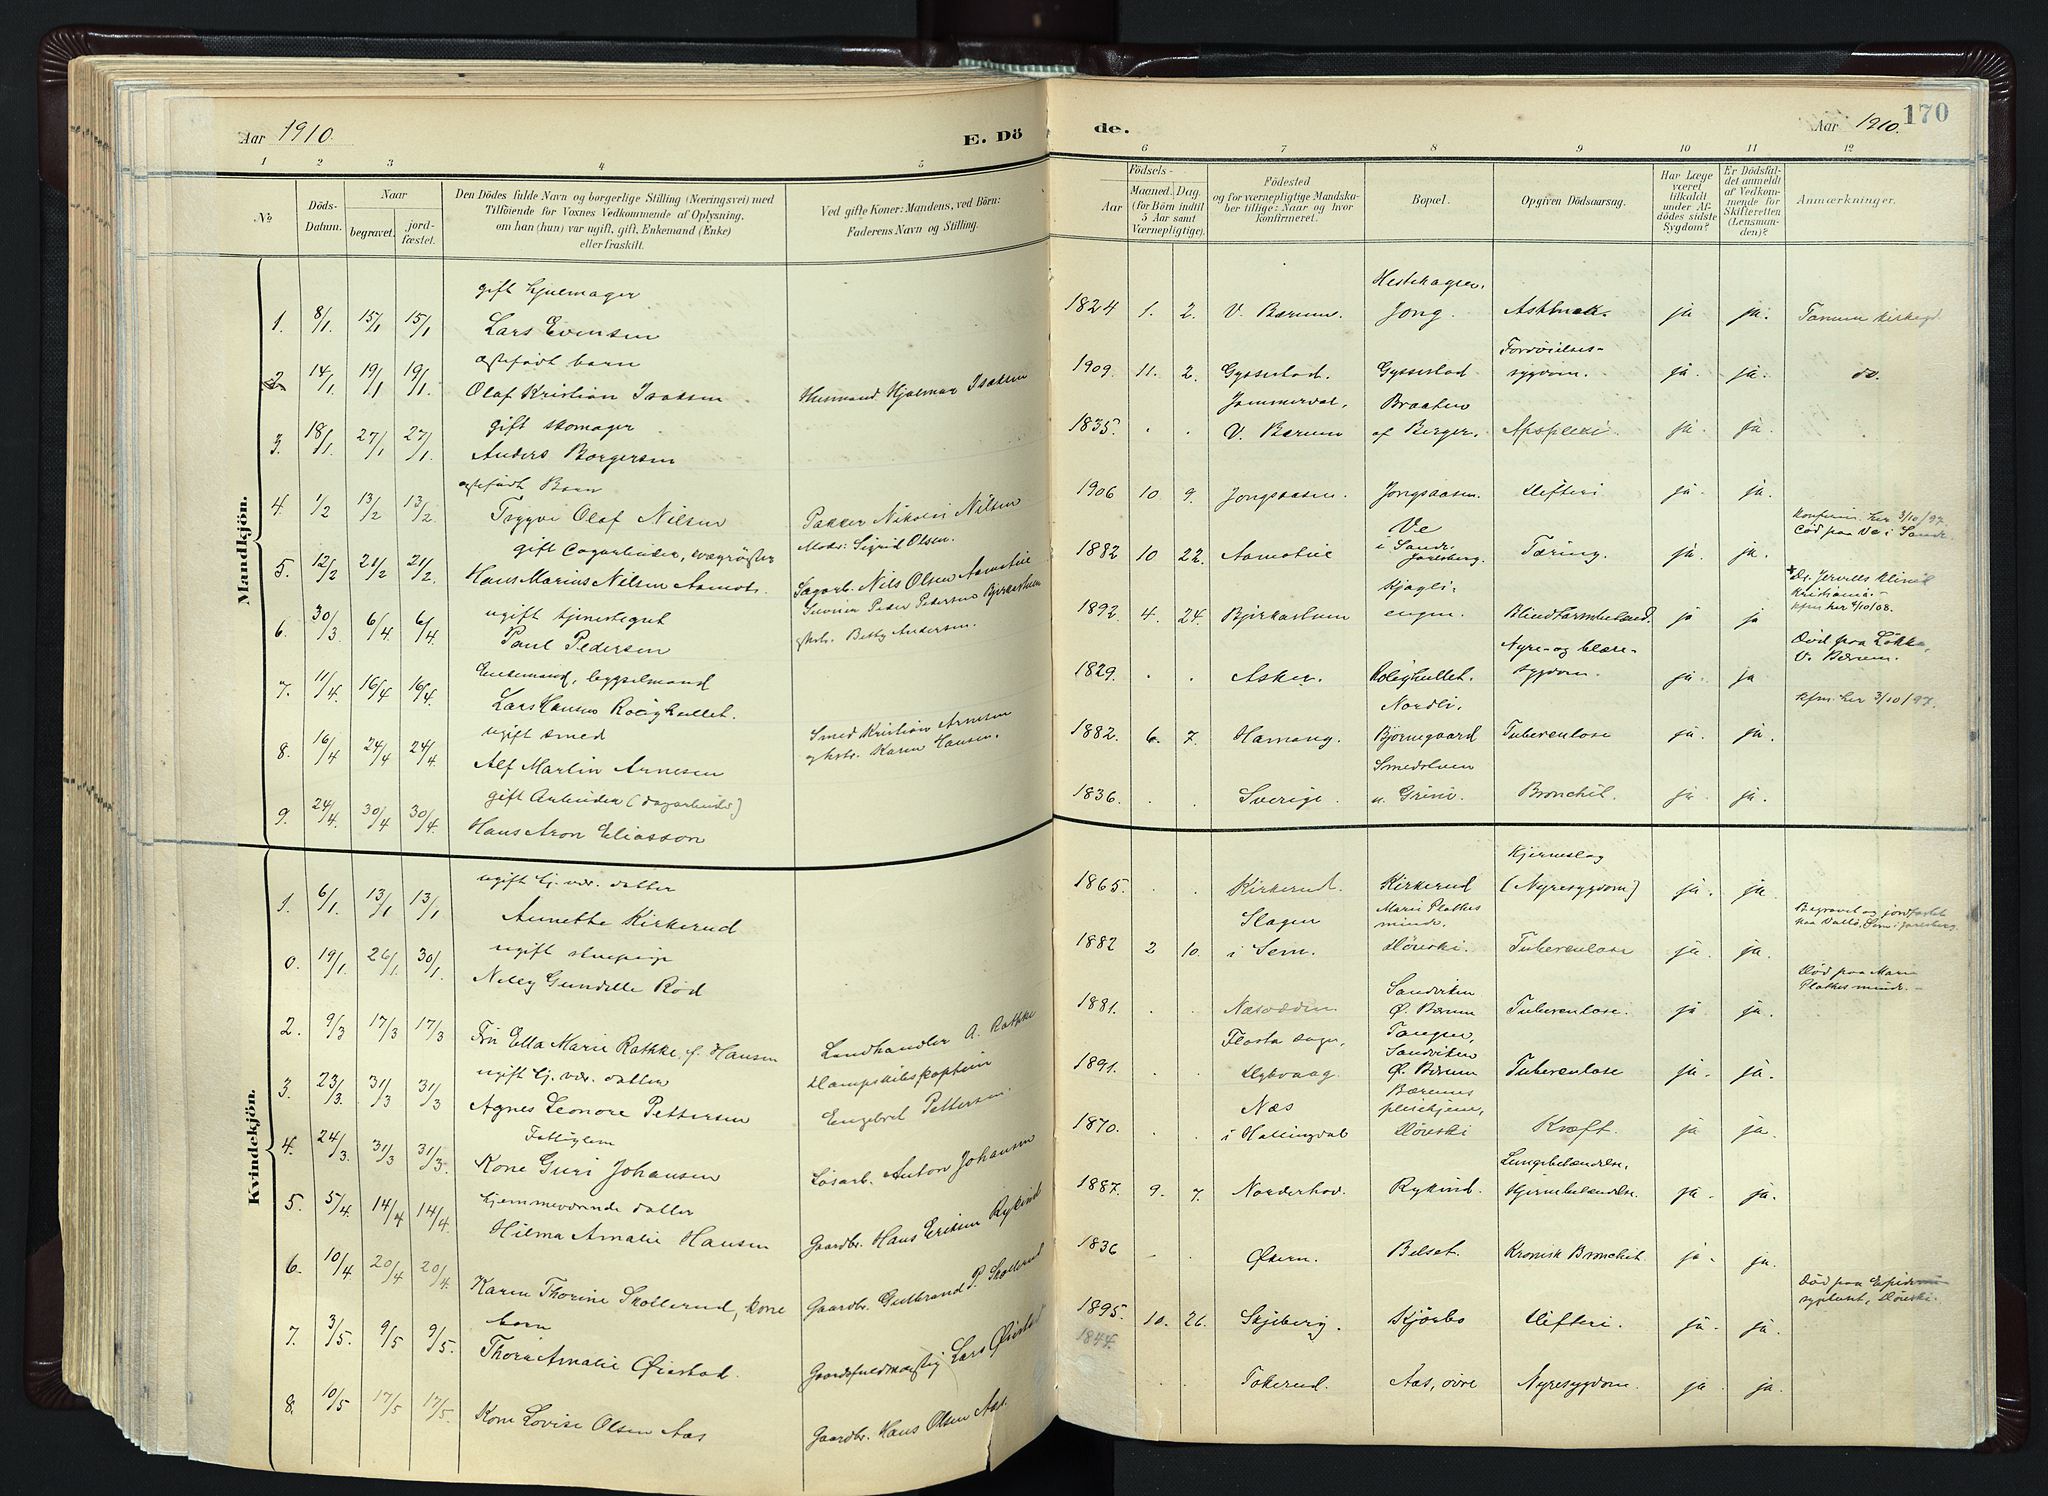 170
Aar 1910.
E. Döde.
Aar 1910.
1 2 3 4 5 6 7 8 9 10 11 12
No
Döds-Datum.
Naar
begravet.
jord-fæstet.
Den Dödes fulde Navn og borgerlige Stilling (Næringsvei) med
Tilföiende for Voxnes Vedkommende af Oplysning,
om han (hun) var ugift, gift, Enkemand (Enke)
eller fraskilt.
Ved gifte Koner: Mandens, ved Börn:
Faderens Navn og Stilling.
Födsels-
Aar
Maaned. Dag.
(for Börn indtil
5 Aar samt
Værnepligtige).
Födested
og for værnepligtige Mandska-
ber tillige: Naar og hvor
konfirmeret.
Bopæl.
Opgiven Dödsaarsag.
Har Læge
været
tilkaldt
under Af-
dödes sidste
Sygdom?
Er Dödsfal-
det anmeldt
af Vedkom-
mende for
Skifteretten
(Lensman-
den)?
Anmærkninger.
Mandkjön.
gift hjulmager Hestehagen,
1. 8/1 15/1 15/1 Lars Evensen 1824 1. 2. V. Bærum. Jong. Asthma. ja ja. Tanum kirkegd.
ægtefødt barn Fordøielses-
2 14/1 19/1 19/1 Olaf Kristian Isaksen Husmand Hjalmar Isaksen 1909. 11. 2. Gyssestad. Gyssestad sygdom. ja. ja. do.
gift skomager Jammerdal, Braaten
3. 18/1. 27/1 27/1. Anders Borgersen 1835. . . V. Bærum af Berger. Apoplexi. ja. ja.
ægtefødt Barn
4. 1/2 13/2 13/2. Trygve Olaf Nilsen Pakker Nikolai Nilsen 1906 10. 9. Jongsaasen. Jongsaasen. Difteri ja. ja.
Moder: Sigrid Olsen.
konfirm. her 3/10/97.
5. 12/2 21/2 21/2. Hans Marius Nilsen Aamot. Sagarb. Nils Olsen Aamotvie 1882 10 22. Aamotvie Ve i Sande Jarlsberg. Tæring. ja. ja. Død paa Ve i Sande
Dr. Jervells klinik
Kristiania.-
kfm her 4/10/08.
ugift tjenestegut
6. 30/3 6/4 6/4. Paul Pedersen Peder Pedersen Bjerkastuen 1892. 4. 24. Bjerkastuen engen. Blindtarmbetænd. ja ja
og hstr. Betty Andersen.
Enkemand, Nyre- og blære- Død paa Løkke,
V. Bærum.
7. 11/4. 16/4 16/4. Lars Hansen Rolighullet. 1829. . . Asker. Rolighullet. sygdom. ja. ja
ugift smed Nordli, kfm. her 3/10/97.
8. 16/4 24/4 24/4. Alf Martin Arnesen Smed Kristian Arnesen 1882. 6. 7. Hamang. Bjørnegaard Tuberculose ja. ja.
og hstr. Karen Hansen.
gift Arbeider (dagarbeider) Smedstuen
9. 24/4. 30/4 30/4. Hans Aron Eliasson 1836. . . Sverige. u. Grini. Bronchit. ja. ja.
Kvindekjön.
ugift hj. vær. datter Hjerneslag
1. 6/1. 13/1 13/1 Annette Kirkerud 1865. . . Kirkerud. Kirkerud (Nyresygdom) ja. ja.
ugift Slagen Marie Plathes minde, Begravet og jordfæstet
paa Vallø, Sem i Jarlsberg.
0. 19/1. 26/1. 30/1. Nelly Gundelle Rød 1882 2 10. i Sem. Døveski. Tuberculose ja. ja.
Død paa Marie
Plathes minde.-
2. 9/3 17/3 17/3. Fru Ella Marie Rathke, f. Hansen Landhandler A. Rathke 1881. . . Næsodden Sandviken Ø. Bærum Tuberculose. ja. ja.
ugift hj. vær. datter Flosta sogn, Tangen, Sandviken
3. 23/3. 31/3 31/3 Agnes Leonore Pettersen Dampskibskaptein Engebret Pettersen 1891. . . Dybvaag. Ø. Bærum Tuberculose ja. ja.
Fattiglem Næs Bærums pleiehjem,
4. 24/3. 31/3 31/3. Kone Guri Johansen Løsarb. Anton Johansen 1870. . . i Hallingdal Døveski Kræft. ja ja.
hjemmeværende datter Lungebetændelse,
5. 5/4. 14/4 14/4. Hilma Amalie Hansen Gaardbr. Hans Eriksen Rykind 1887. 9. 7. Norderhov. Rykind. Hjernebetændelse. ja. ja.
6. 10/4 20/4 20/4. Karen Thorine Skollerud, kone Gaardbr. Gulbrand P. Skollerud 1836 - - Østern. Belset. Kronisk Bronchit. ja. ja.
barn Død paa Epidemi
sygehuset, Døveski.
7. 3/5. 9/5 9/5. Thora Amalie Øiestad. Gaardsfuldmægtig Lars Øiestad 1895. 10. 26. Skjeberg. Kjørbo Difteri. ja. ja.
1844.
8. 10/5 17/5 17/5. Kone Lovise Olsen Aas Gaardbr. Hans Olsen Aas. . . Tokerud. Aas, øvre Nyresygdom. ja ja.